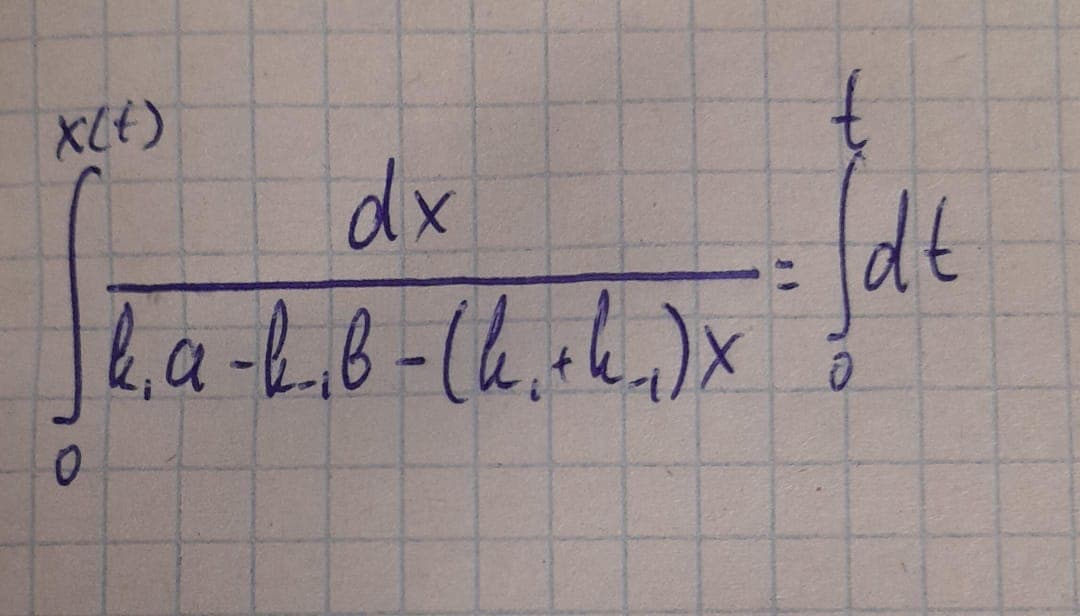 ∫₀ˣ⁽ᵗ⁾ dx / (k₁a - k₋₁b - (k₁ + k₋₁)x) = ∫₀ᵗ dt